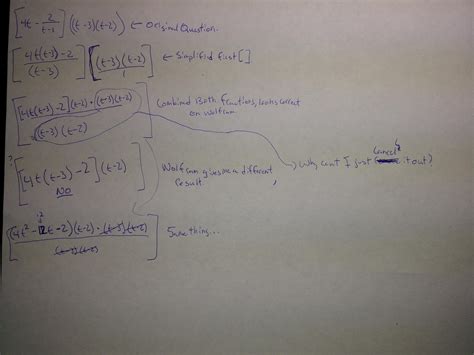 [4t - 2/(t-3)] ((t-3)(t-2)) ← Original Question.
[(4t(t-3)-2)/(t-3)] [((t-3)(t-2))/1] ← Simplified first [ ]
[([4t(t-3)-2](t-2)·(t-3)(t-2))/((t-3)(t-2))] Combined Both functions, looks correct on wolfram
? [4t(t-3)-2](t-2)] Wolfram gives me a different result.
NO
→ Why cant I just Cancel it out?
12
[((4t²-12t-2)(t-2)·(t-3)(t-2))/((t-3)(t-2))] Same thing...